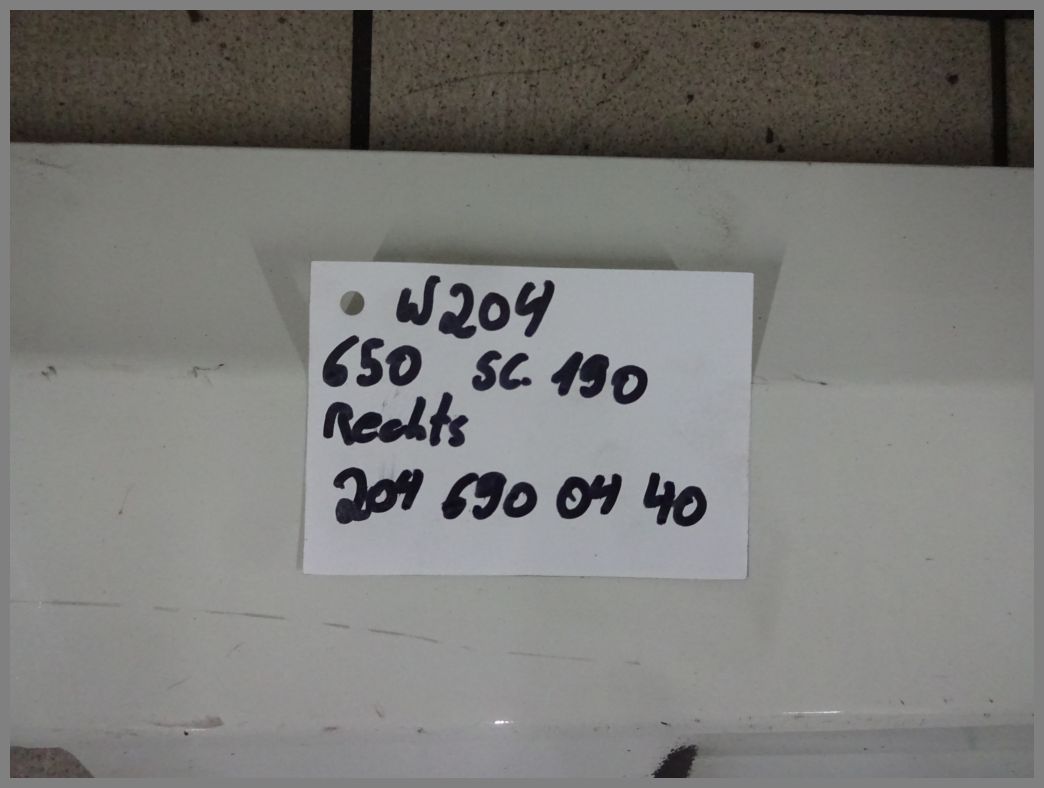 W204
650 SC. 190
Rechts
204 690 04 40